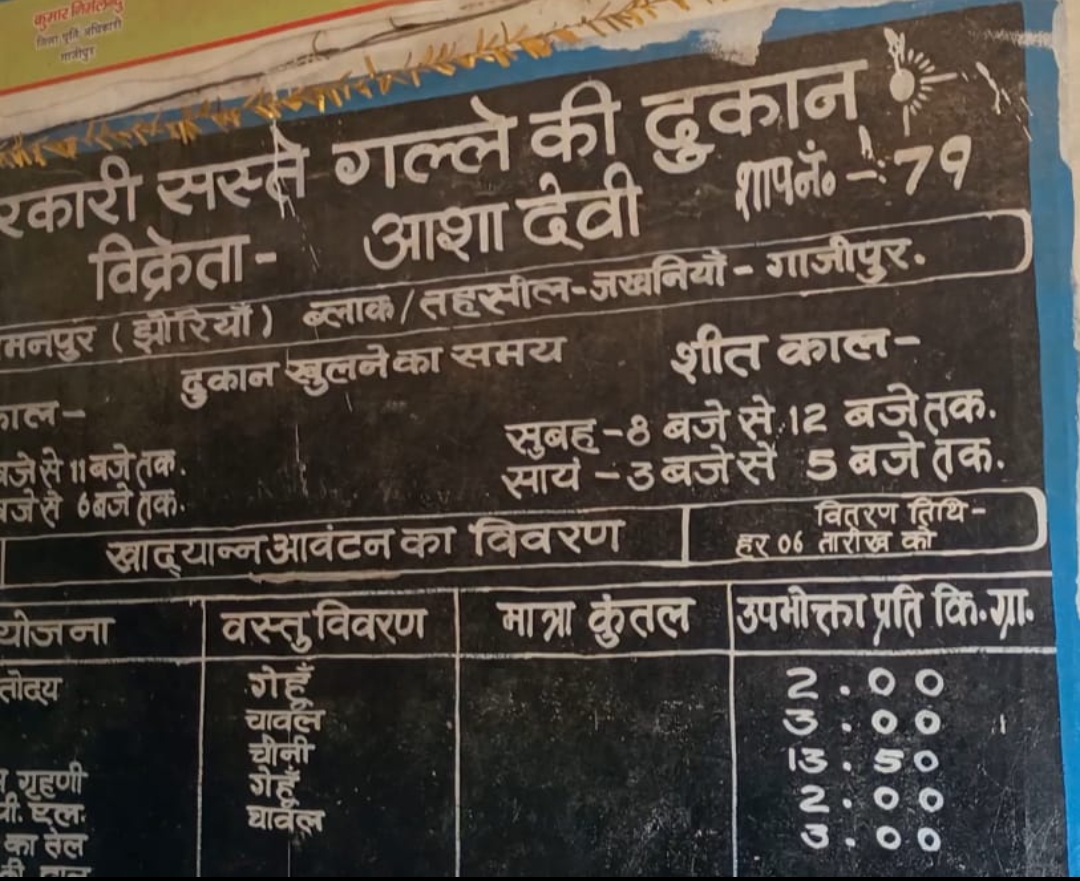 कुमार निर्मलेन्दु
जिला पूर्ति अधिकारी
गाजीपुर
रकारी सस्ते गल्ले की दुकान
शाप नं० -: 79
विक्रेता- आशा देवी
मनपुर (झोरियाँ) ब्लाक/तहसील-जखनियाँ - गाजीपुर.
दुकान खुलने का समय
ाल - शीत काल -
बजे से 11 बजे तक. सुबह - 8 बजे से 12 बजे तक.
बजे से 6 बजे तक. सायं - 3 बजे से 5 बजे तक.
खाद्यान्न आवंटन का विवरण वितरण तिथि -
हर 06 तारीख को
योजना वस्तु विवरण मात्रा कुंतल उपभोक्ता प्रति कि.ग्रा.
तोदय गेहूँ 2.00
चावल 3.00
चीनी 13.50
गृहणी गेहूँ 2.00
पी. एल. चावल 3.00
का तेल